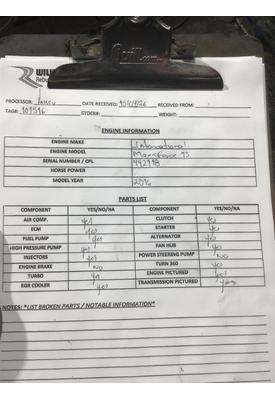 WILL
Rebu
PROCESSOR: DATE RECEIVED: RECEIVED FROM:
TAG#: 101596 STOCK#: WEIGHT:
ENGINE INFORMATION
ENGINE MAKE International
ENGINE MODEL Maxxforce 13
SERIAL NUMBER / CPL
HORSE POWER
MODEL YEAR
PARTS LIST
COMPONENT YES/NO/NA COMPONENT YES/NO/NA
AIR COMP. yes CLUTCH yes
ECM yes STARTER yes
FUEL PUMP yes ALTERNATOR yes
HIGH PRESSURE PUMP yes FAN HUB yes
INJECTORS yes POWER STEERING PUMP NO
ENGINE BRAKE NO TURN 360 yes
TURBO yes ENGINE PICTURED yes
EGR COOLER yes TRANSMISSION PICTURED yes
NOTES: *LIST BROKEN PARTS / NOTABLE INFORMATION*